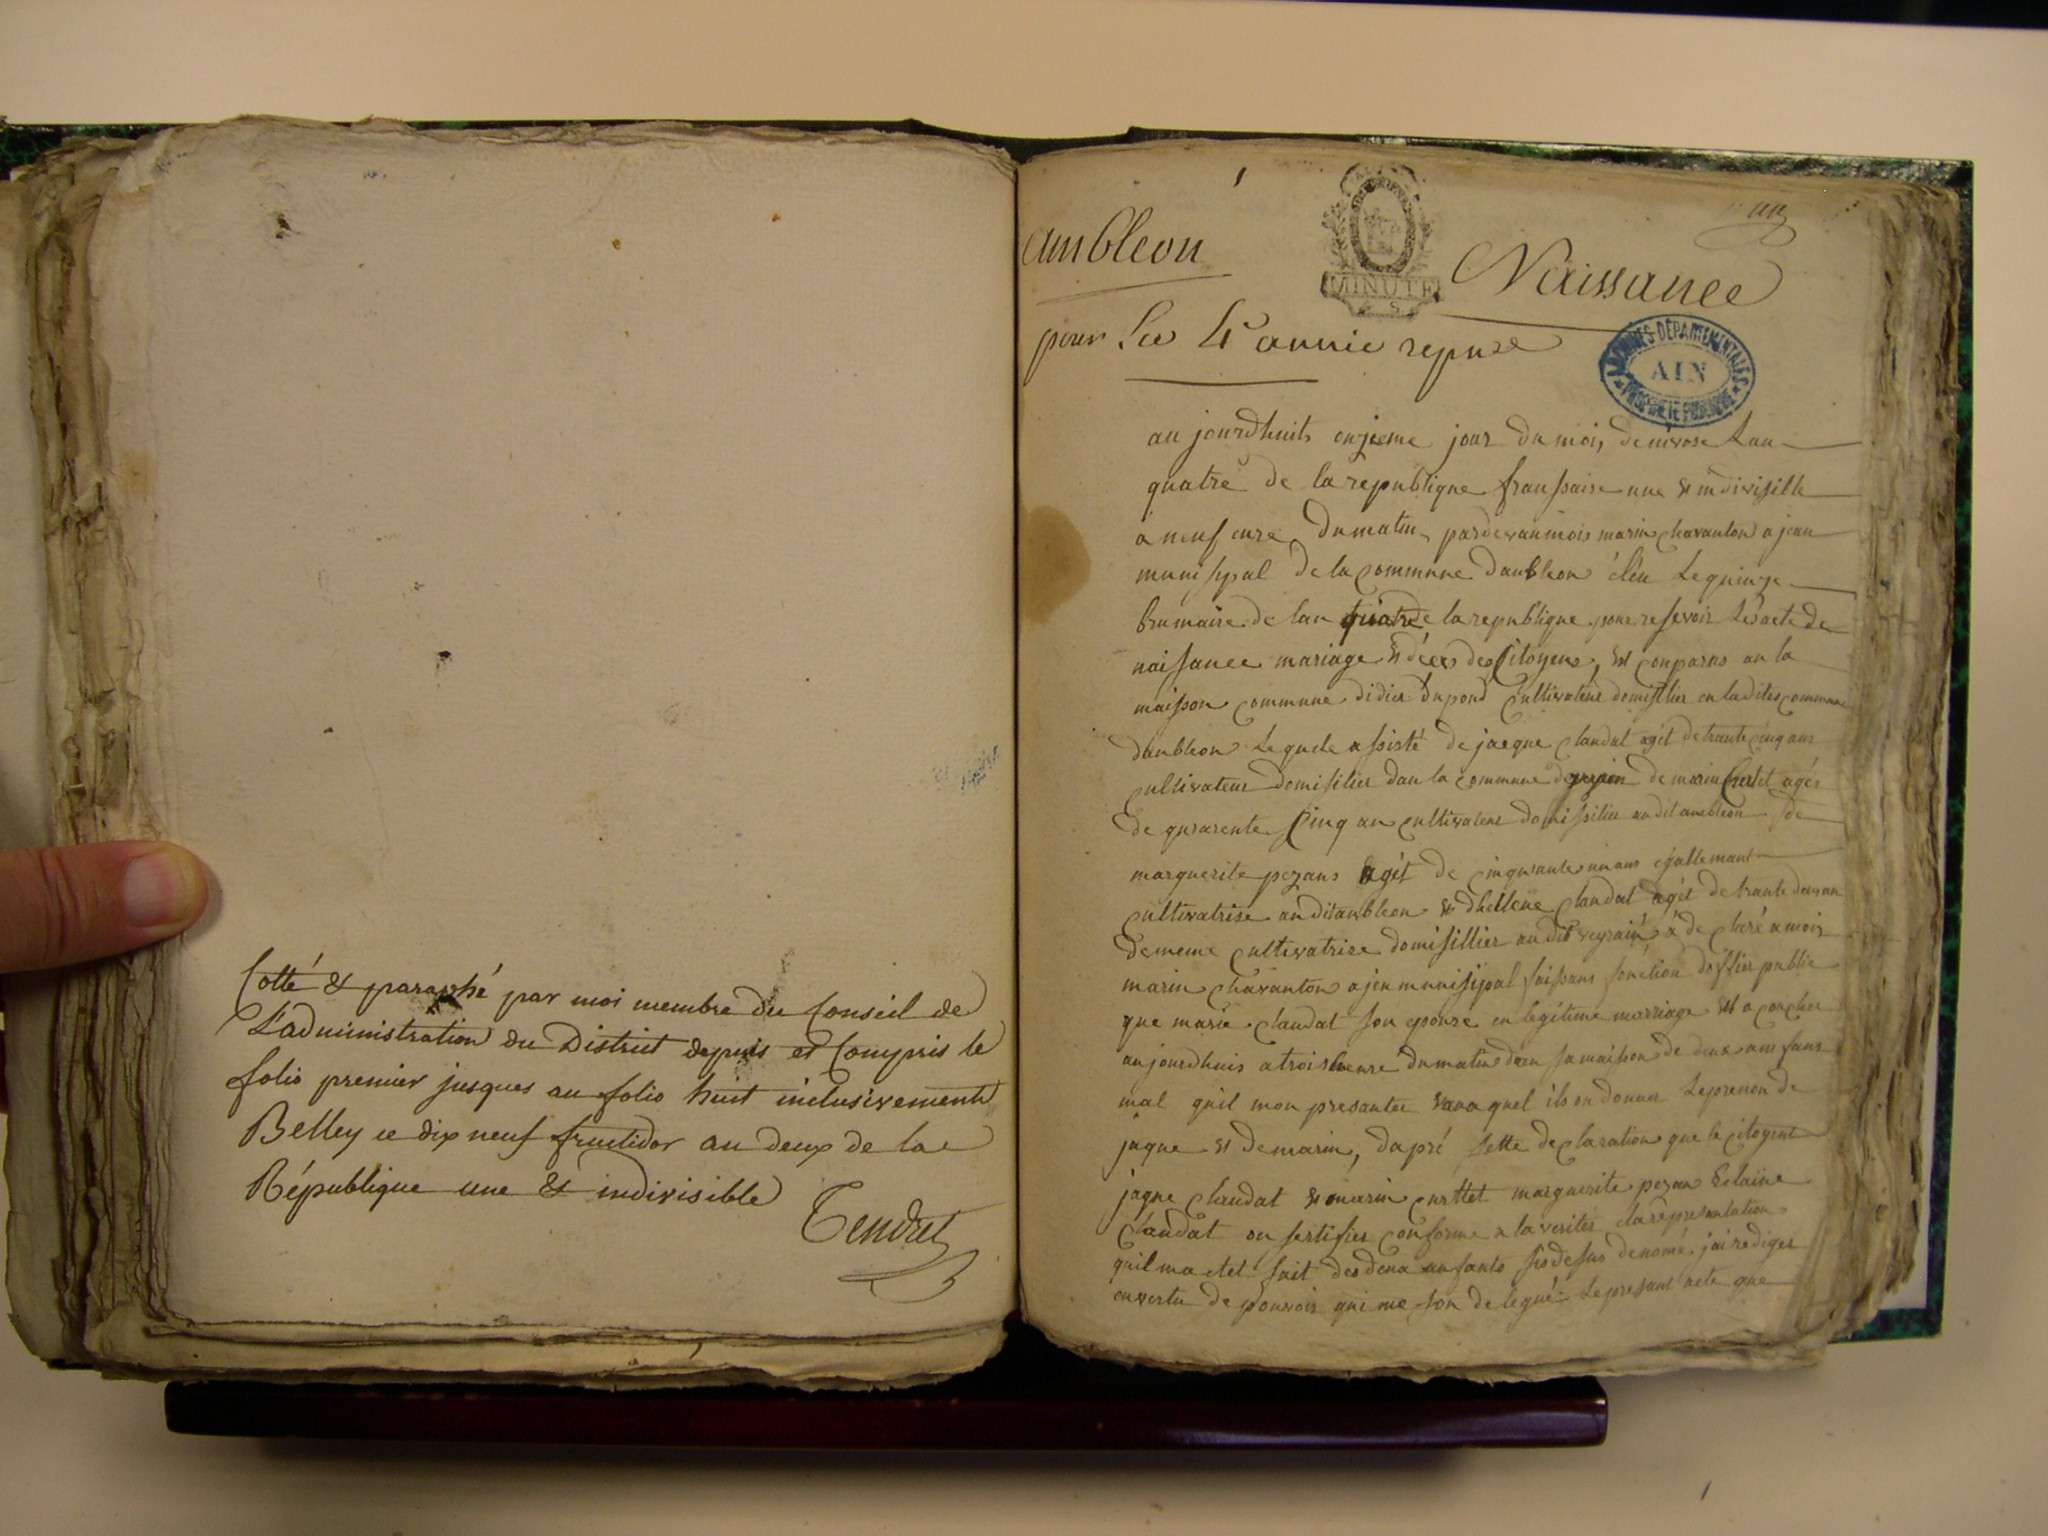 Cotté & paraphé par moi membre du Conseil de
L'administration du District depuis et Compris le
folio premier jusques au folio huit inclusivement
Belley ce dix neuf fructidor an deux de la
République une & indivisible
Tendret
1
un
ambleon
MINUTE
Naissance
pour La 4e année repu
ARCHIVES DÉPARTEMENTALES
AIN
PROPRIÉTÉ PUBLIQUE
au jourdhuits onzieme jour du mois de nivose Lan
quatre de la republique franssaise une & indivisille
a neuf eure du matin pardevan mois marin chavanton ajean
munisipal de la commune danbleon éleu Le quinze
brumaire de lan quatre de la republique pour resevoir Les acte de
naissance mariage & déces des Citoyens, est conparus an la
maison commune didier dupond Cultivateur domisilier en la dites commune
danbleon Le quele assisté de jacque claudat agét de trante cinq ans
cultivateur domisilier dan la commune de marin Curtet agés
de quarente Cinq an cultivateur domissilier audit ambleon de
marguerite pezans agét de cinquante un ans egallemant
cultivatrise audit ambleon & dhellene Claudat agét de trante deux an
de meme cultivatrise domisillier audit veyrain a de claré a mois
marin chavanton ajen munisipal faissans fonction doffier public
que marie claudat son epouse en legitime marriage est acoucher
aujourdhuis a trois heure du matin dan sa maison de deux anfans
mal quil mon presanter auquel ils on donner Le prenon de
jaque et de marin, dapré sette de claration que le citoyens
jaque claudat & marin curttet marguerite pezan helaine
Claudat on sertifier conforme a la verites la représantation
quil ma etet fait des deux anfants sidesus denomé jai rediger
en vertu de pouvois qui me son delegué Le presant acte que